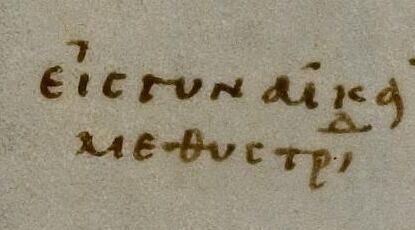 εἰς γυναῖκα
μεθυστριδ